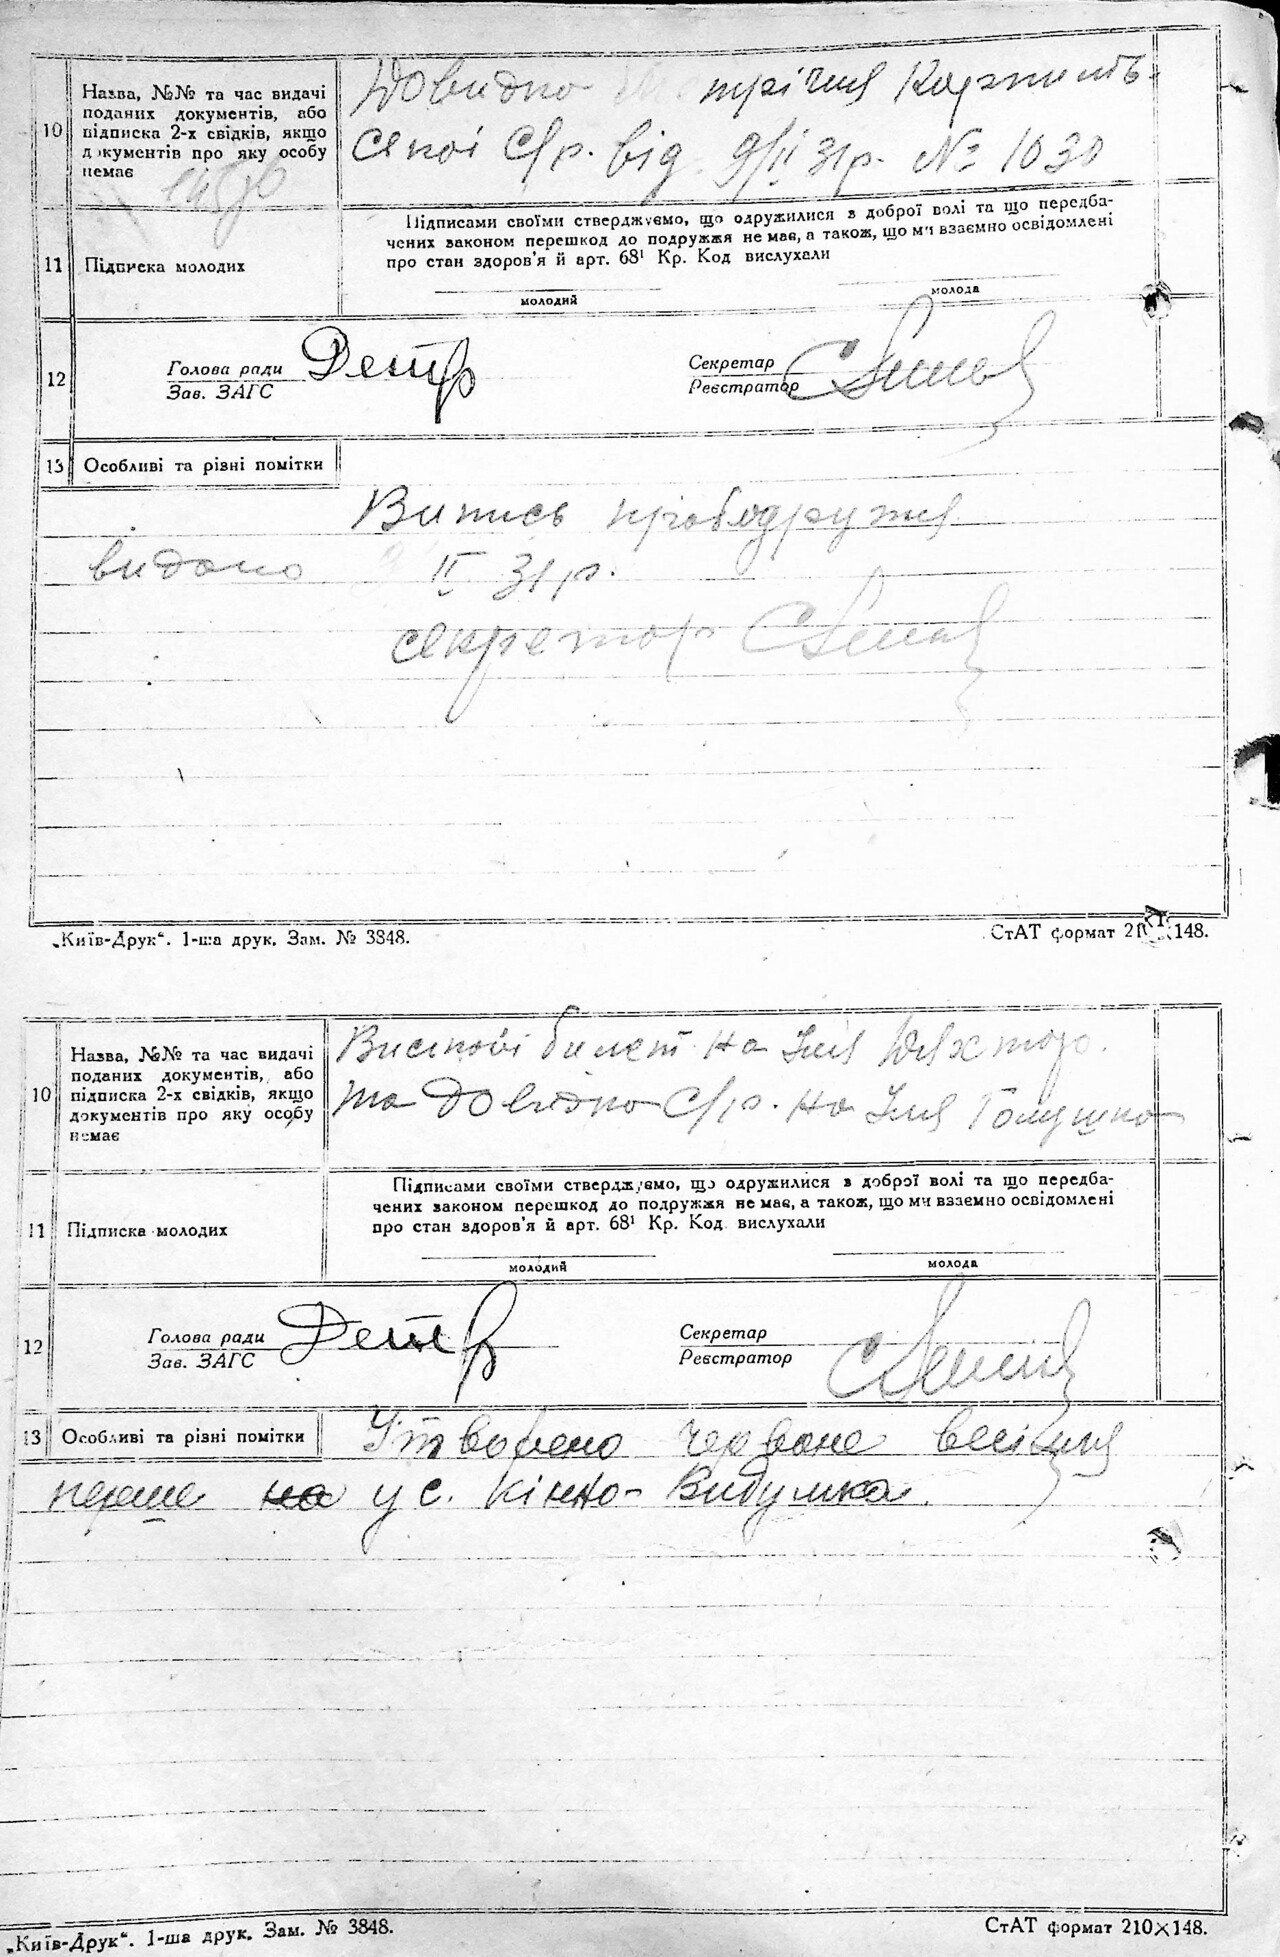 10
Назва, №№ та час видачі
поданих документів, або
підписка 2-х свідків, якщо
документів про яку особу
немає
Довидка
ської С/р. від 9/ІІ 31р. № 1030
11
Підписка молодих
Підписами своїми стверджуємо, що одружилися з доброї волі та що передба-
чених законом перешкод до подружжя не має, а також, що ми взаємно освідомлені
про стан здоров'я й арт. 68¹ Кр. Код вислухали
молодий
молода
12
Голова ради
Зав. ЗАГС
Секретар
Реєстратор
13
Особливі та різні помітки
Випись
видано ІІ 31р.
секретар
„Київ-Друк“. 1-ша друк. Зам. № 3848.
СтАТ формат 148.
10
Назва, №№ та час видачі
поданих документів, або
підписка 2-х свідків, якщо
документів про яку особу
немає
білет на Імя
та Довідка С/р. на Імя Голушка
11
Підписка молодих
Підписами своїми стверджуємо, що одружилися з доброї волі та що передба-
чених законом перешкод до подружжя не має, а також, що ми взаємно освідомлені
про стан здоров'я й арт. 68¹ Кр. Код вислухали
молодий
молода
12
Голова ради
Зав. ЗАГС
Секретар
Реєстратор
13
Особливі та різні помітки
Утворено червоне весілля
перше на у с. Кінно-Видумка.
„Київ-Друк“. 1-ша друк. Зам. № 3848.
СтАТ формат 210×148.